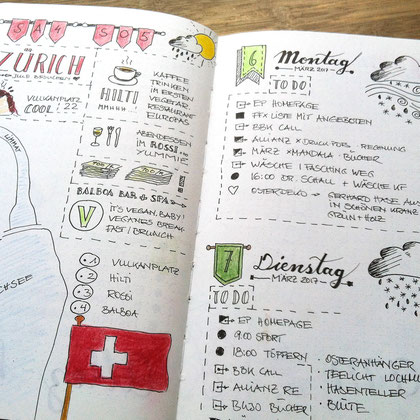 SA4 SO5
ZÜRICH
VULKANPLATZ
COOL! 22
LIMMAT
KAFFEE
TRINKEN
IM ERSTEN
VEGETAR.
RESTAURANT
EUROPAS
HILTL
MMHHH
ABENDESSEN
IM ROSSI
YUMMIE
BALBOA BAR & SPA
V
IT'S VEGAN, BABY!
VEGANES BREAK-
FAST / BRUNCH
1 VULKANPLATZ
2 HILTL
3 ROSSI
4 BALBOA
6
Montag
MÄRZ 2017
TO DO
EP HOMEPAGE
FFX LISTE MIT ANGEBOTEN
BBK CALL
ALLIANZ X DRUCK PDF, REGNUNG
MÄRZ X MANDALA BÜCHER
WÄSCHE / FASCHING WEG
16:00 DR. SCHALL + WÄSCHE KF
OSTERDEKO → GERHARD HASE AUS
IN SCHÖNEN KRAN
GRÜN + HOLZ
7
Dienstag
MÄRZ 2017
TO DO
EP HOMEPAGE
9:00 SPORT
18:00 TÖPFERN
BBK CALL
ALLIANZ RE
BUJO BÜCHER
OSTERANHÄNGER
TEELICHT LOCHMU
HASENTELLER
BLÜTE